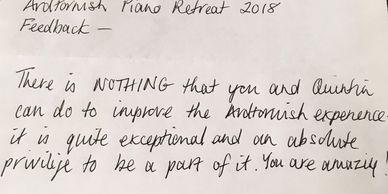 Ardtornish Piano Retreat 2018
Feedback —
There is NOTHING that you and Quintin
can do to improve the Ardtornish experience.
it is quite exceptional and an absolute
privilije to be a part of it. You are amazing!